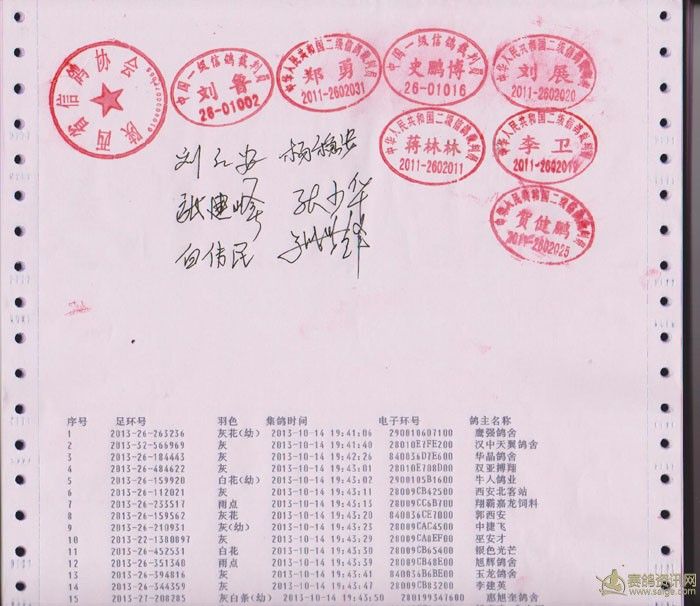 陕西省信鸽协会
中国一级信鸽裁判员
刘鲁
26-01002
中华人民共和国二级信鸽裁判员
郑勇
2011-2602031
中国一级信鸽裁判员
史鹏博
26-01016
中华人民共和国二级信鸽裁判员
刘展
2011-2602020
中华人民共和国二级信鸽裁判员
蒋林林
2011-2602011
中华人民共和国二级信鸽裁判员
李卫
中华人民共和国二级信鸽裁判员
贺健鹏
2011-2602025
张建峰 张少华
白伟民
序号 足环号 羽色 集鸽时间 电子环号 鸽主名称
1 2013-26-263236 灰花(幼) 2013-10-14 19:41:06 290010607100 鹰强鸽舍
2 2013-32-566969 灰 2013-10-14 19:41:40 28010E7FE200 汉中天翼鸽舍
3 2013-26-184443 灰 2013-10-14 19:42:26 840836D7E600 华晶鸽舍
4 2013-26-484622 灰 2013-10-14 19:43:01 28010E708D00 双亚搏翔
5 2013-26-159920 白花(幼) 2013-10-14 19:43:02 2900105B1600 牛人鸽业
6 2013-26-112021 灰 2013-10-14 19:43:11 28009CB42500 西安北客站
7 2013-26-233517 雨点 2013-10-14 19:43:13 28009CC6B700 翔霸嘉龙饲料
8 2013-26-159562 灰花 2013-10-14 19:43:20 840836CE7800 郭西安
9 2013-26-210931 灰(幼) 2013-10-14 19:43:23 28009CAC4500 中捷飞
10 2013-22-1380897 灰 2013-10-14 19:43:29 28009CA8EF00 巫安才
11 2013-26-452531 白花 2013-10-14 19:43:30 28009CB65400 银色光芒
12 2013-26-351348 雨点 2013-10-14 19:43:39 28009CB5A600 旭辉鸽舍
13 2013-26-394816 灰 2013-10-14 19:43:41 840836DB6B00 玉龙鸽舍
14 2013-26-344359 灰 2013-10-14 19:43:47 28009CB83200 李建英
15 2013-27-208285 灰白条(幼) 2013-10-14 19:43:50 280199347680 惠旭奎鸽舍
赛鸽资讯网
www.saige.com